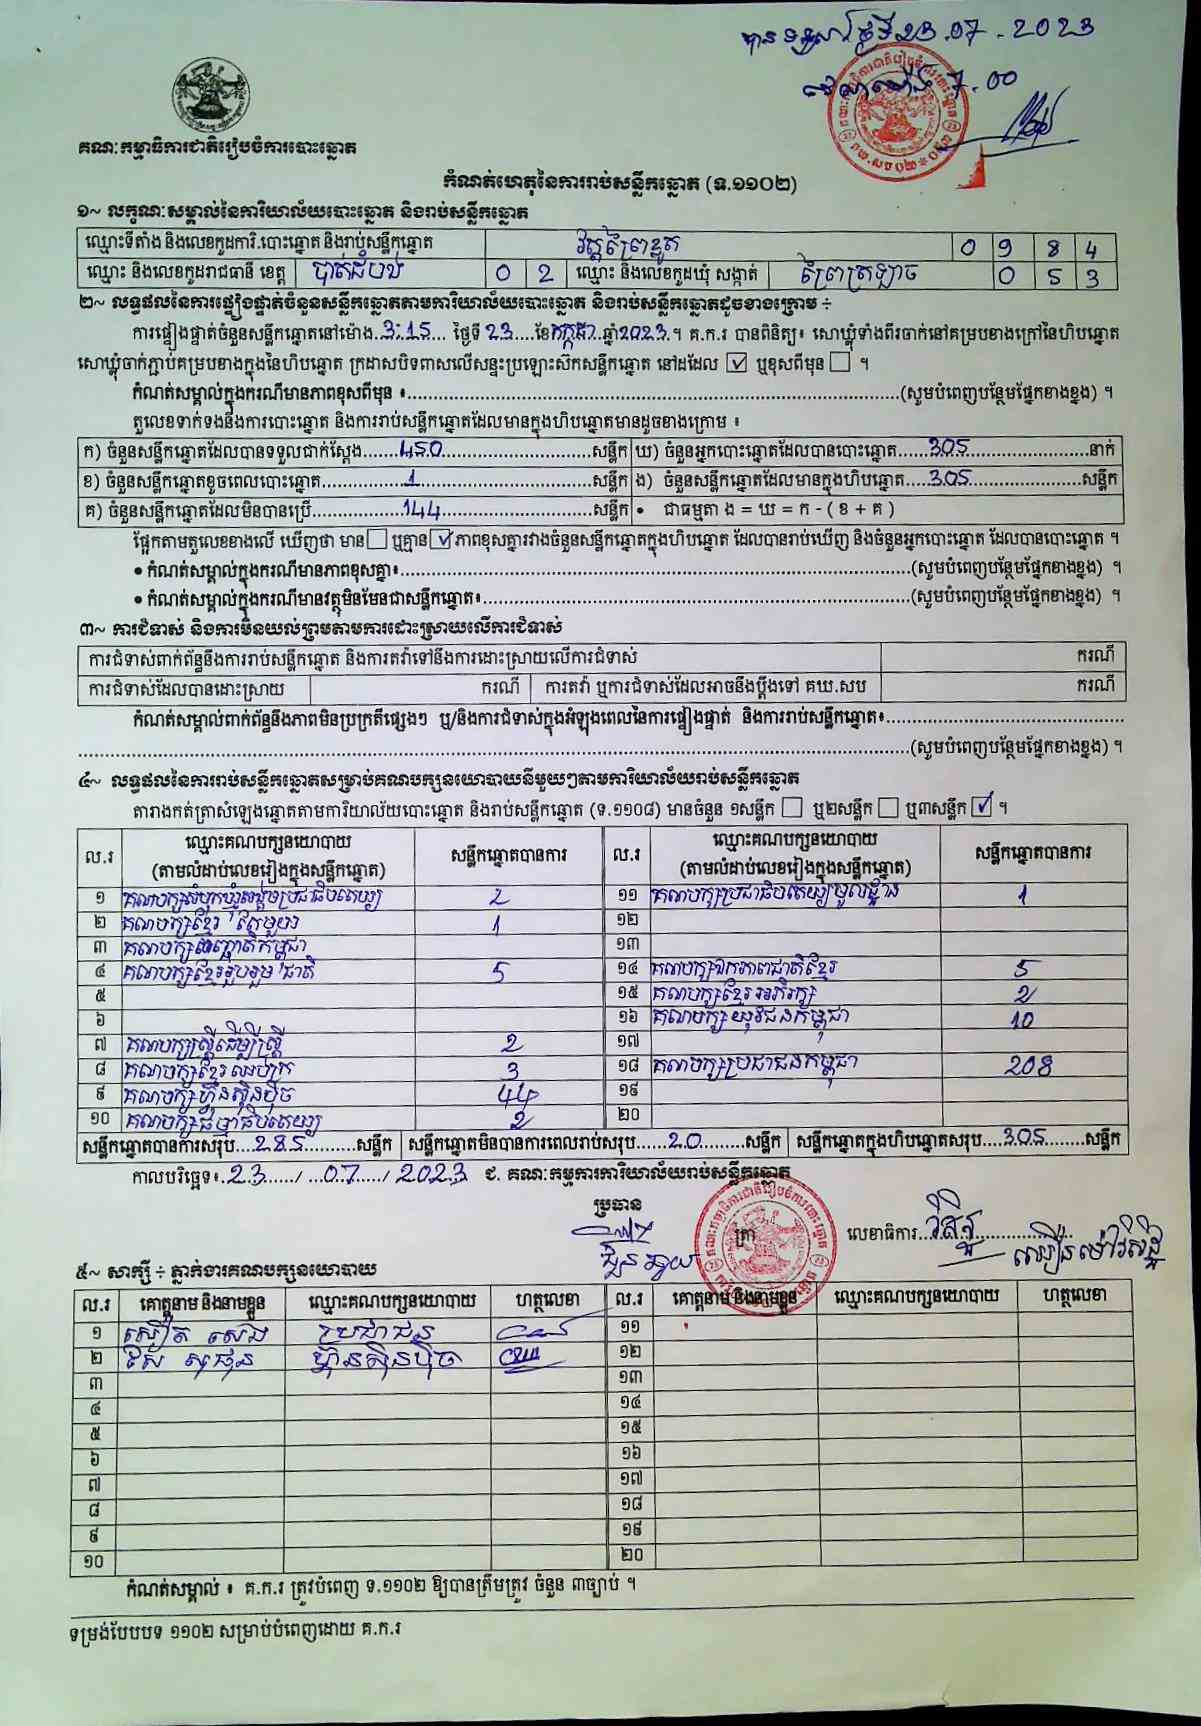 បានទទួលថ្ងៃទី 23.07.2023
វេលាម៉ោង 7.00
គណៈកម្មាធិការជាតិរៀបចំការបោះឆ្នោត
កំណត់ហេតុនៃការរាប់សន្លឹកឆ្នោត (ទ.១១០២)
១~ លក្ខណៈសម្គាល់នៃការិយាល័យបោះឆ្នោត និងរាប់សន្លឹកឆ្នោត
ឈ្មោះទីតាំង និងលេខកូដការិ.បោះឆ្នោត និងរាប់សន្លឹកឆ្នោត វត្តព្រៃខ្លូត 0 9 8 4
ឈ្មោះ និងលេខកូដរាជធានី ខេត្ត បាត់ដំបង 0 2 ឈ្មោះ និងលេខកូដឃុំ សង្កាត់ ព្រៃត្រឡាច 0 5 3
២~ លទ្ធផលនៃការផ្ទៀងផ្ទាត់ចំនួនសន្លឹកឆ្នោតតាមការិយាល័យបោះឆ្នោត និងរាប់សន្លឹកឆ្នោតដូចខាងក្រោម ÷
ការផ្ទៀងផ្ទាត់ចំនួនសន្លឹកឆ្នោតនៅម៉ោង..3:15... ថ្ងៃទី 23....ខែកក្កដា..ឆ្នាំ2023.។ គ.ក.រ បានពិនិត្យ៖ សោឃ្លុំទាំងពីរចាក់នៅគម្របខាងក្រៅនៃហិបឆ្នោត
សោឃ្លុំចាក់ភ្ជាប់គម្របខាងក្នុងនៃហិបឆ្នោត ក្រដាសបិទពាសលើសន្ទះប្រឡោះស៊កសន្លឹកឆ្នោត នៅដដែល ☑ ឬខុសពីមុន ☐ ។
កំណត់សម្គាល់ក្នុងករណីមានភាពខុសពីមុន ៖....(សូមបំពេញបន្ថែមផ្នែកខាងខ្នង) ។
តួលេខទាក់ទងនឹងការបោះឆ្នោត និងការរាប់សន្លឹកឆ្នោតដែលមានក្នុងហិបឆ្នោតមានដូចខាងក្រោម ៖
ក) ចំនួនសន្លឹកឆ្នោតដែលបានទទួលជាក់ស្តែង.......450.......សន្លឹក ឃ) ចំនួនអ្នកបោះឆ្នោតដែលបានបោះឆ្នោត......305.......នាក់
ខ) ចំនួនសន្លឹកឆ្នោតខូចពេលបោះឆ្នោត.......1.......សន្លឹក ង) ចំនួនសន្លឹកឆ្នោតដែលមានក្នុងហិបឆ្នោត....305.......សន្លឹក
គ) ចំនួនសន្លឹកឆ្នោតដែលមិនបានប្រើ.......144.......សន្លឹក • ជាធម្មតា ង = ឃ = ក - ( ខ + គ )
ផ្អែកតាមតួលេខខាងលើ ឃើញថា មាន☐ ឬគ្មាន☑ ភាពខុសគ្នារវាងចំនួនសន្លឹកឆ្នោតក្នុងហិបឆ្នោត ដែលបានរាប់ឃើញ និងចំនួនអ្នកបោះឆ្នោត ដែលបានបោះឆ្នោត ។
• កំណត់សម្គាល់ក្នុងករណីមានភាពខុសគ្នា៖....(សូមបំពេញបន្ថែមផ្នែកខាងខ្នង) ។
• កំណត់សម្គាល់ក្នុងករណីមានវត្ថុមិនមែនជាសន្លឹកឆ្នោត៖....(សូមបំពេញបន្ថែមផ្នែកខាងខ្នង) ។
៣~ ការជំទាស់ និងការមិនយល់ព្រមតាមការដោះស្រាយលើការជំទាស់
ការជំទាស់ពាក់ព័ន្ធនឹងការរាប់សន្លឹកឆ្នោត និងការតវ៉ាទៅនឹងការដោះស្រាយលើការជំទាស់ ករណី
ការជំទាស់ដែលបានដោះស្រាយ ករណី ការតវ៉ា ឬការជំទាស់ដែលអាចនឹងប្តឹងទៅ គឃ.សប ករណី
កំណត់សម្គាល់ពាក់ព័ន្ធនឹងភាពមិនប្រក្រតីផ្សេងៗ ឬ/និងការជំទាស់ក្នុងអំឡុងពេលនៃការផ្ទៀងផ្ទាត់ និងការរាប់សន្លឹកឆ្នោត៖....
....(សូមបំពេញបន្ថែមផ្នែកខាងខ្នង) ។
៤~ លទ្ធផលនៃការរាប់សន្លឹកឆ្នោតសម្រាប់គណបក្សនយោបាយនីមួយៗតាមការិយាល័យរាប់សន្លឹកឆ្នោត
តារាងកត់ត្រាសំឡេងឆ្នោតតាមការិយាល័យបោះឆ្នោត និងរាប់សន្លឹកឆ្នោត (ទ.១១០៨) មានចំនួន ១សន្លឹក ☐ ឬ២សន្លឹក ☐ ឬ៣សន្លឹក ☑ ។
ល.រ ឈ្មោះគណបក្សនយោបាយ (តាមលំដាប់លេខរៀងក្នុងសន្លឹកឆ្នោត) សន្លឹកឆ្នោតបានការ ល.រ ឈ្មោះគណបក្សនយោបាយ (តាមលំដាប់លេខរៀងក្នុងសន្លឹកឆ្នោត) សន្លឹកឆ្នោតបានការ
១ គណបក្សសំបុកឃ្មុំសង្គមប្រជាធិបតេយ្យ 2 ១១ គណបក្សប្រជាធិបតេយ្យមូលដ្ឋាន 1
២ គណបក្សខ្មែរតែមួយ 1 ១២
៣ គណបក្ស កម្ពុជា ១៣
៤ គណបក្សខ្មែររួបរួមជាតិ 5 ១៤ គណបក្សឯកភាពជាតិខ្មែរ 5
៥ ១៥ គណបក្សខ្មែរអភិរក្ស 2
៦ ១៦ គណបក្សយុវជនកម្ពុជា 10
៧ គណបក្សស្ត្រីដើម្បីស្ត្រី 2 ១៧
៨ គណបក្សខ្មែរឈប់ក្រ 3 ១៨ គណបក្សប្រជាជនកម្ពុជា 208
៩ គណបក្សហ្វ៊ុនស៊ិនប៉ិច 44 ១៩
១០ គណបក្សធម្មាធិបតេយ្យ 2 ២០
សន្លឹកឆ្នោតបានការសរុប...285......សន្លឹក សន្លឹកឆ្នោតមិនបានការពេលរាប់សរុប.....20......សន្លឹក សន្លឹកឆ្នោតក្នុងហិបឆ្នោតសរុប...305......សន្លឹក
កាលបរិច្ឆេទ៖.23....../...07...../ 2023 ជ. គណៈកម្មការការិយាល័យរាប់សន្លឹកឆ្នោត
ប្រធាន ត្រា លេខាធិការ....
៥~ សាក្សី ÷ ភ្នាក់ងារគណបក្សនយោបាយ
ល.រ គោត្តនាម និងនាមខ្លួន ឈ្មោះគណបក្សនយោបាយ ហត្ថលេខា ល.រ គោត្តនាម និងនាមខ្លួន ឈ្មោះគណបក្សនយោបាយ ហត្ថលេខា
១ ប្រជាជន ១១
២ ហ្វ៊ុនស៊ិនប៉ិច ១២
៣ ១៣
៤ ១៤
៥ ១៥
៦ ១៦
៧ ១៧
៨ ១៨
៩ ១៩
១០ ២០
កំណត់សម្គាល់ ៖ គ.ក.រ ត្រូវបំពេញ ទ.១១០២ ឱ្យបានត្រឹមត្រូវ ចំនួន ៣ច្បាប់ ។
ទម្រង់បែបបទ ១១០២ សម្រាប់បំពេញដោយ គ.ក.រ